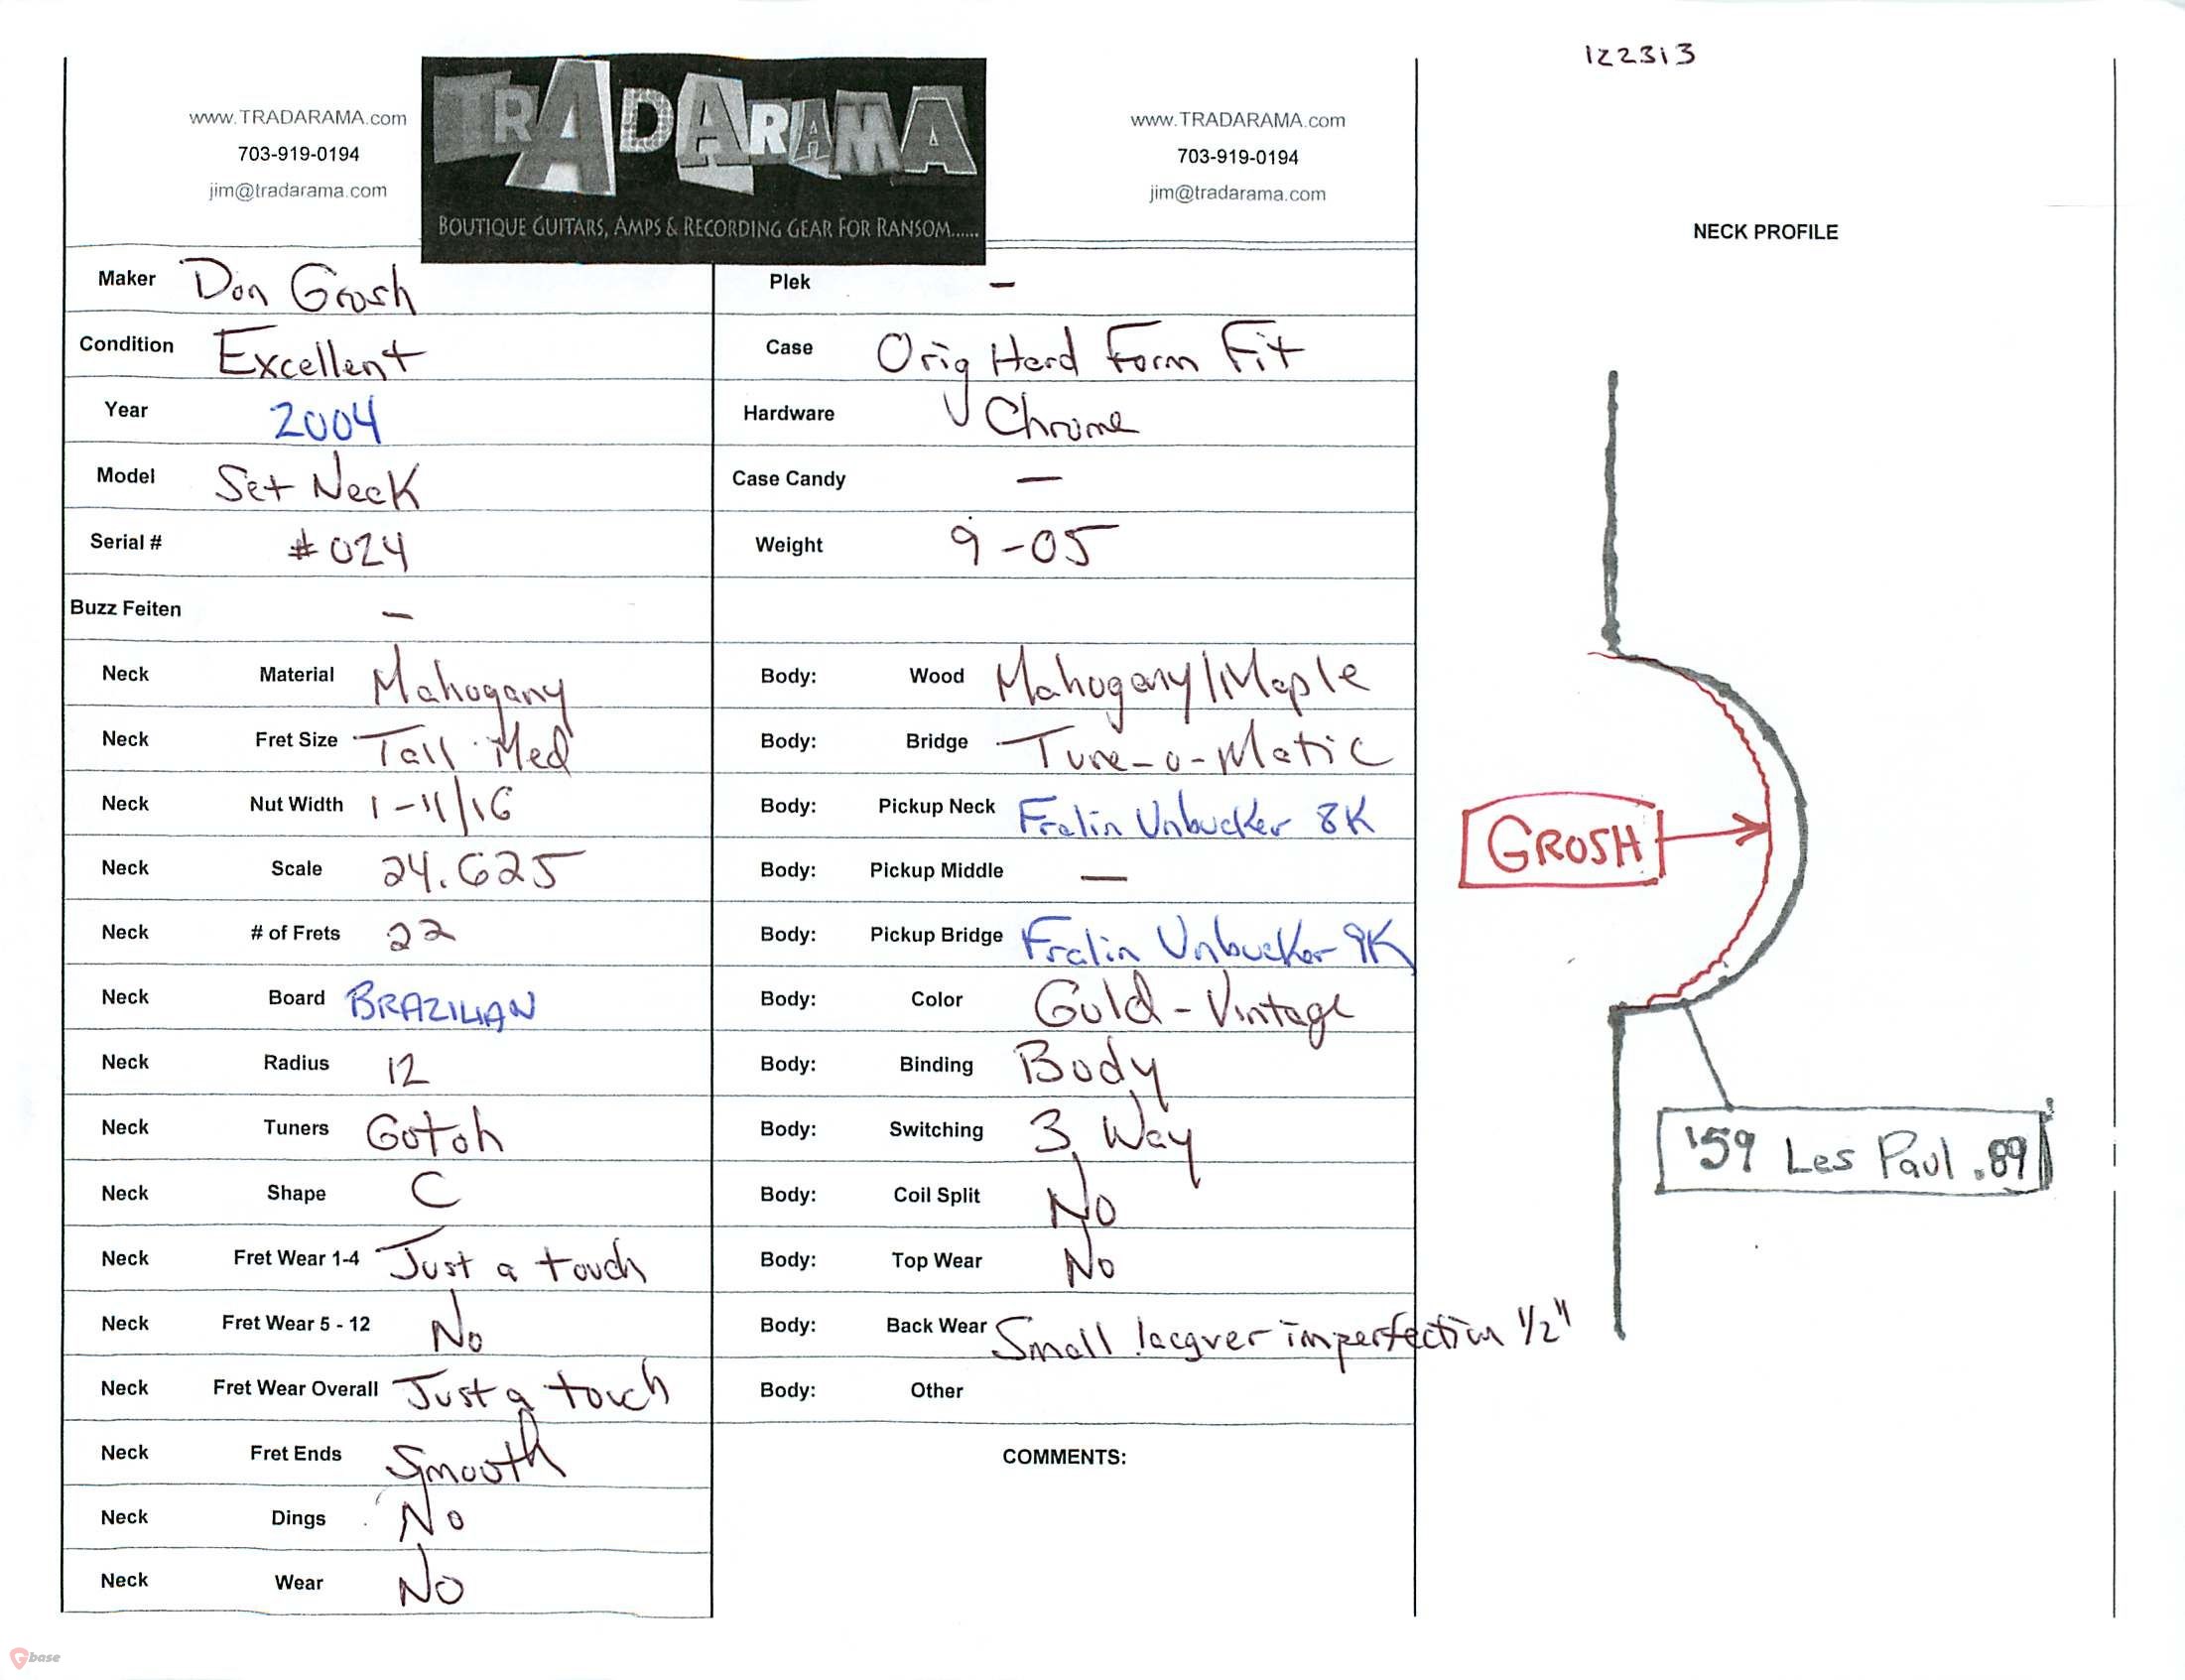 122313
www.TRADARAMA.com
703-919-0194
jim@tradarama.com
TRADARAMA
BOUTIQUE GUITARS, AMPS & RECORDING GEAR FOR RANSOM......
www.TRADARAMA.com
703-919-0194
jim@tradarama.com
NECK PROFILE
Maker Don Grosh
Condition Excellent
Year 2004
Model Set Neck
Serial # #024
Buzz Feiten –
Neck Material Mahogany
Neck Fret Size Tall Med
Neck Nut Width 1-11/16
Neck Scale 24.625
Neck # of Frets 22
Neck Board BRAZILIAN
Neck Radius 12
Neck Tuners Gotoh
Neck Shape C
Neck Fret Wear 1-4 Just a touch
Neck Fret Wear 5 - 12 No
Neck Fret Wear Overall Just a touch
Neck Fret Ends Smooth
Neck Dings No
Neck Wear No
Plek –
Case Orig Hard Form Fit
Hardware Chrome
Case Candy –
Weight 9-05
Body: Wood Mahogany/Maple
Body: Bridge Tune-o-Matic
Body: Pickup Neck Fralin Unbucker 8K
Body: Pickup Middle –
Body: Pickup Bridge Fralin Unbucker 9K
Body: Color Gold-Vintage
Body: Binding Body
Body: Switching 3 Way
Body: Coil Split No
Body: Top Wear No
Body: Back Wear Small lacquer imperfection 1/2"
Body: Other
COMMENTS:
GROSH
'59 Les Paul .89
Gbase